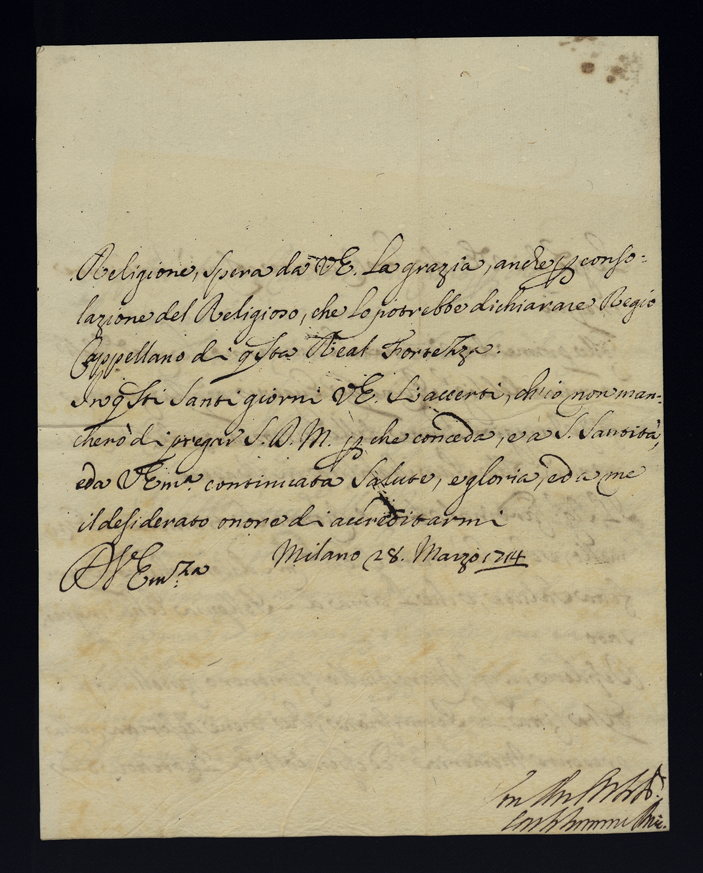 Religione, spera da VE. La grazia, anche p conso=
lazione del Religioso, che Lo potrebbe dichiarare Regio
Cappellano di qsta Real Fortezza.
In qsti Santi giorni VE. S'accerti, ch'io non man=
cherò di pregar S. D. M. p che conceda, e à S. Santità,
ed a VEmª. continuata Salute, e gloria, ed a me
il desiderato onore di accreditarmi
D VEmza Milano 28. Marzo 1714